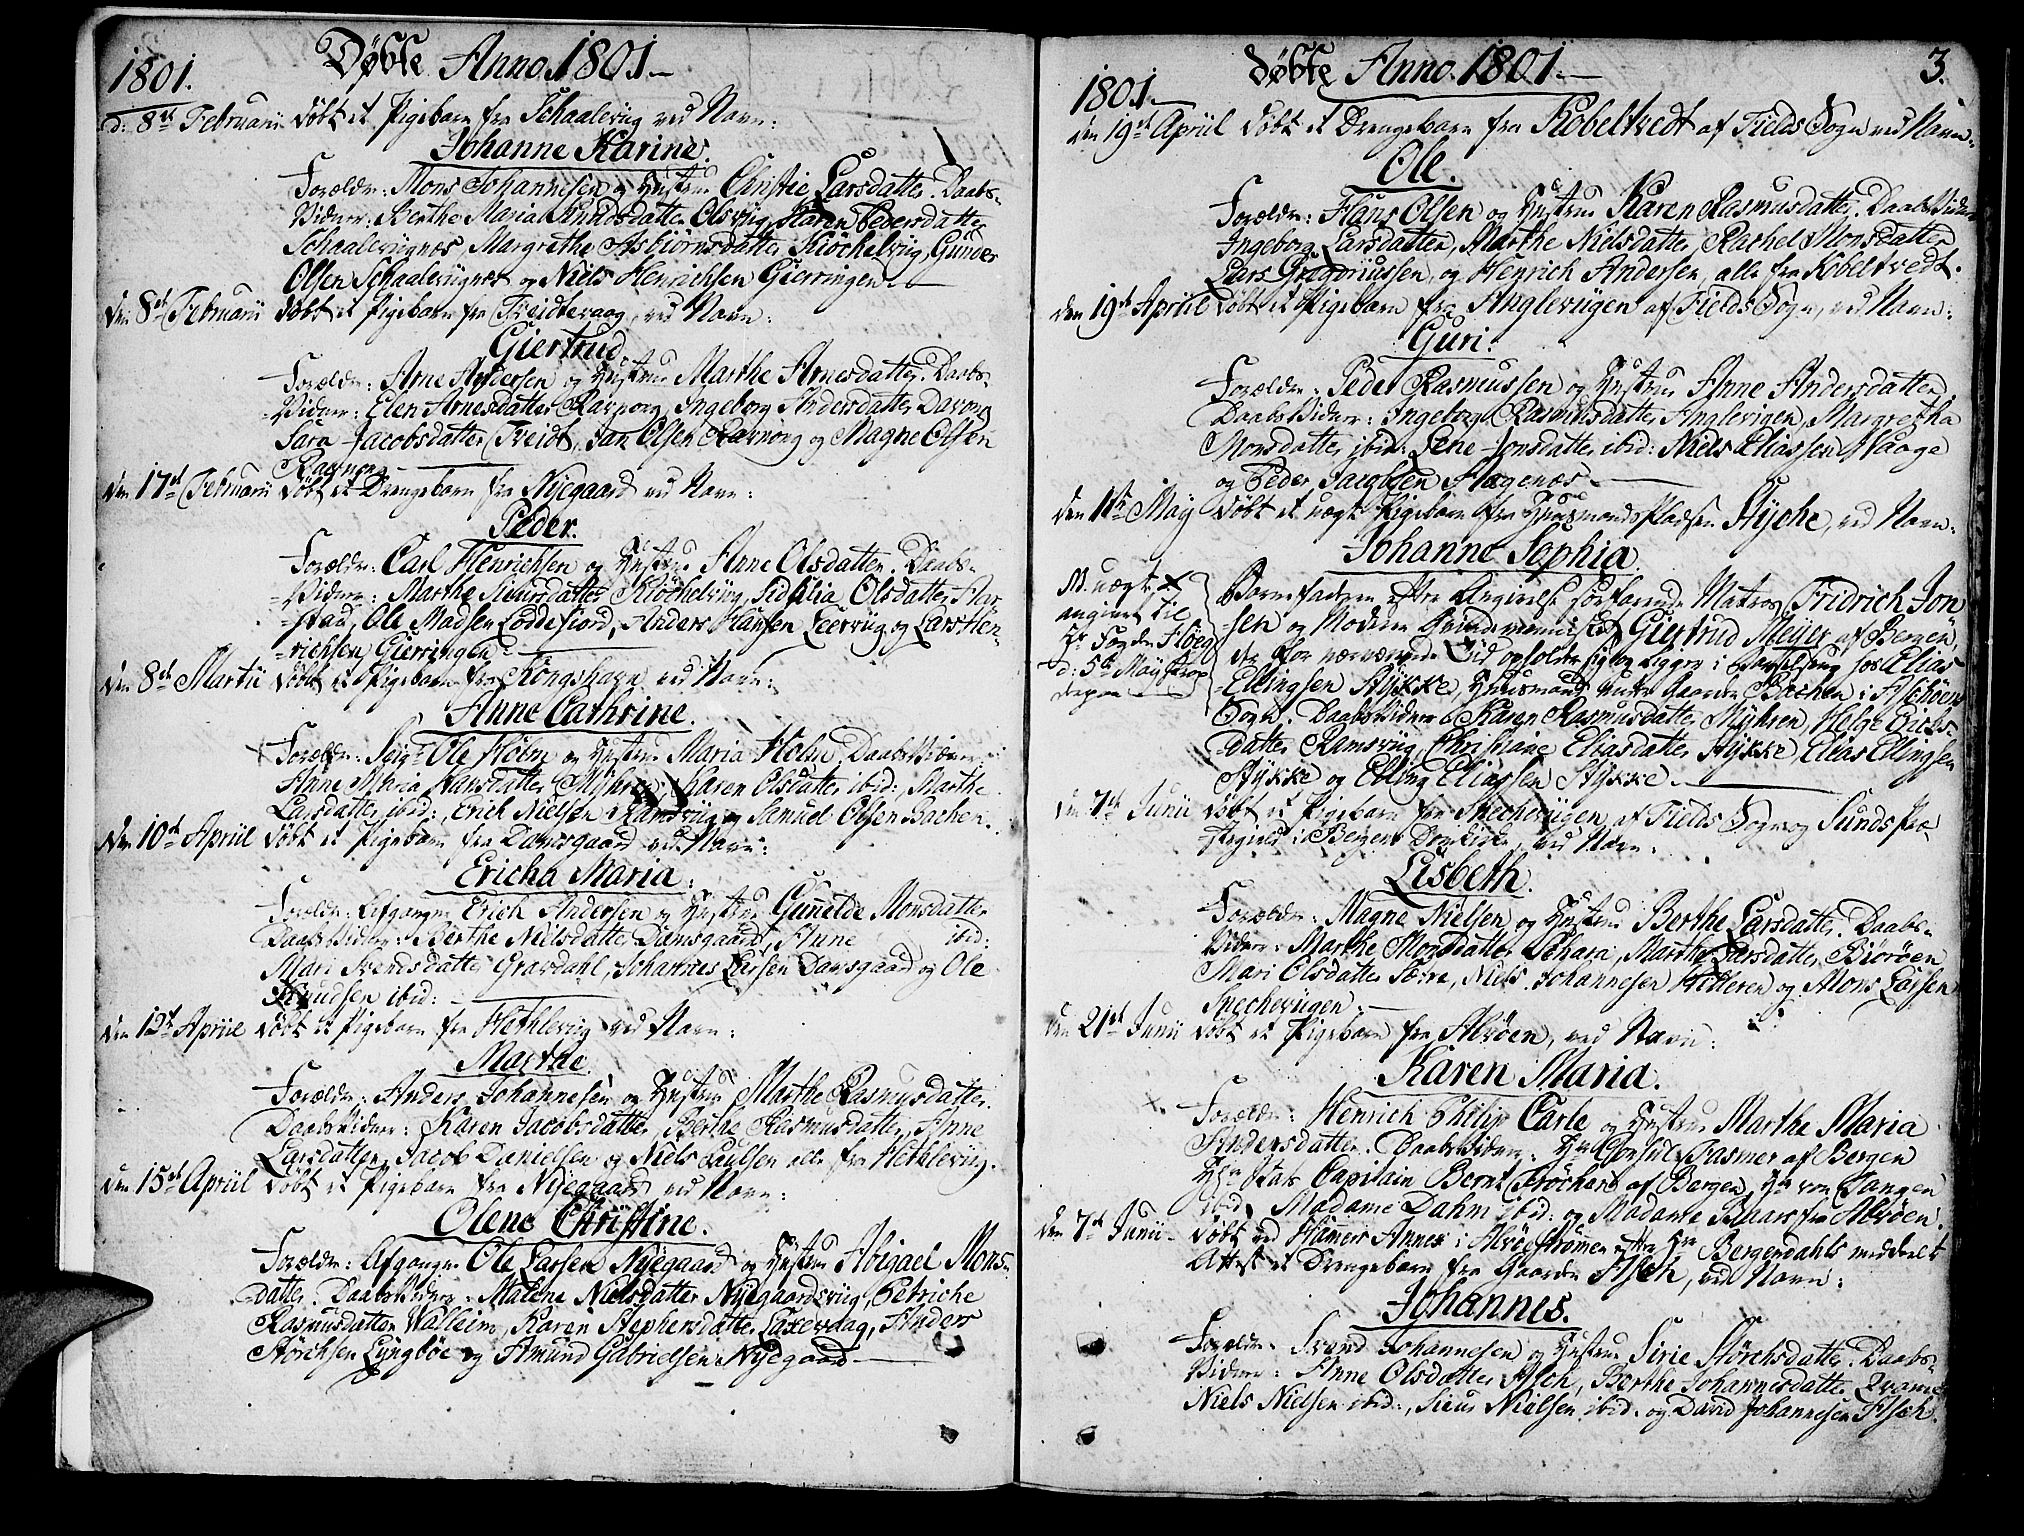 Døbte Anno 1801.
1801.
d: 8de Februarii døbt et Pigebarn fra Schaalevug ved Navn:
Johanne Karine.
Forældre: Mons Johannesen og Hustrue Christie Larsdatter. Daabs-
Vidner: Berthe Maria Knudsdatter Olsvig, Karen Pedersdatter
Schaalevugnæs, Margrethe Asbiørnsdatter Kiøchelvug, Gunder
Olsen Schaalevugnæs og Niels Henrichsen Gierringen.
den 8de Februarii døbt et Pigebarn fra Treidtevaag, ved Navn:
Giertrud.
Forældre: Arne Andersen og Hustrue Marthe Arnesdatter. Daabs-
Vidner: Elen Arnesdatter Ravnorg, Ingeborg Andersdatter
Sara Jacobsdatter Treidt, Jan Olsen Ravnorg og Magne Olsen
Ravnorg.
den 17de Februarii døbt et Drengebarn fra Nyegaard ved Navn:
Peder.
Forældre: Carl Henrichsen og Hustrue Anne Olsdatter. Daabs-
Vidner: Marthe Siursdatter Kiøchelvug, Sidselia Olsdatter Har-
stad, Ole Madsen Loddefiord, Anders Hansen Leervug og Lars Hen-
richsen Gierringen.
den 8de Martii døbt et Pigebarn fra Kongshavn ved Navn:
Anne Cathrine.
Forældre: Seigr Ole Holm og Hustrue Maria Holm. Daabs Vidner:
Anne Maria Hansdatter Myhren, Karen Olsdatter ibid:, Marthe
Larsdatter ibid:, Erich Nielsen Ramsvug og Samuel Olsen Bachen.
den 10de Apriil døbt et Pigebarn fra Damsgaard ved Navn:
Ericha Maria.
Forældre: Afgangne Erich Andersen og Hustrue Gunnelde Monsdatter
Daabs Vidner: Berthe Nielsdatter Damsgaard, Anne ibid:
Mari Svendsdatter Gravdahl, Johannes Larsen Damsgaard og Ole
Knudsen ibid:
den 12te Apriil døbt et Pigebarn fra Hetlevug ved Navn:
Marthe.
Forældre: Anders Johannesen og Hustrue Marthe Rasmusdatter.
Daabs Vidner: Karen Jacobsdatter, Berthe Rasmusdatter, Anne
Larsdatter, Jacob Danielsen og Niels Paulsen alle fra Hethlevug.
den 15de Apriil døbt et Pigebarn fra Nyegaard ved Navn:
Olene Christine.
Forældre: Afgangne Ole Larsen Nyegaard og Hustrue Abigael Mons-
datter. Daabs Vidner: Malene Nielsdatter Nyegaardsvug, Petriche
Rasmusdatter Walleim, Karen Stephensdatter Laxevaag, Anders
Størchsen Lyngbøe og Amund Gabrielsen Nyegaard.
3.
Døbte Anno 1801.
1801.
den 19de Apriil døbt et Drengebarn fra Kobeltvedt af Fields Sogn ved Navn:
Ole.
Forældre: Hans Olsen og Hustrue Karen Rasmusdatter. Daabs Vidner
Ingeborg Larsdatter, Marthe Nielsdatter, Rachel Monsdatter
Lars Gregoriussen, og Henrich Andersen, alle fra Kobeltvedt.
den 19de Apriil døbt et Pigebarn fra Anglevugen af Fields Sogn, ved Navn:
Guri.
Forældre: Peder Rasmussen og Hustrue Anne Andersdatter
Daabs Vidner: Ingeborg Rasmusdatter Anglevigen, Margretha
Monsdatter ibid: Lene Jonsdatter ibid: Niels Eliassen Haage
og Peder Jacobsen Hagenæs.
den 1ste May døbt et uægte Pigebarn fra Huusmands Pladsen Styche, ved Navn:
Johanne Sophia.
NB. uægte
angivet til
Hr Fogden Floeg
d: 5te May
Barnefaderen efter Angivelse forfarende Matros Fridrich Jon-
sen og Moderen Qvindemenniskes Giertrud Meyer af Bergen,
der for nærværende Tid opholder sig og ligger i Barselseng hos Elias
Ellingsen Stykke, Huusmand under Gaarden Bachen i Aschøens
Sogn. Daabs Vidner: Karen Rasmusdatter Myhren, Helge Jacobs-
datter Ramsvug, Christiane Eliasdatter Stykke, Elias Ellingsen
Stykke og Elling Eliassen Stykke.
den 7de Junii døbt et Pigebarn fra Snechevugen af Fields Sogn og Sunds Præ-
stegield i Bergens Domkirke, ved Navn:
Lisbeth.
Forældre: Magne Nielsen og Hustrue Berthe Larsdatter. Daabs-
Vidner: Marthe Monsdatter Toharn, Marthe Larsdatter Biørøen
Mari Olsdatter Tørre, Niels Johannesen Hilleren og Mons Larsen
Snechevugen.
den 21de Junii døbt et Pigebarn fra Alvøen, ved Navn:
Karen Maria.
Forældre: Henrich Philip Carle og Hustrue Marthe Maria
Andersdatter. Daabs Vidner: Hr Consul Fasmer af Bergen
Hr Stats Capitain Bernt Frøchen af Bergen, Hr von Tangen
ibid, Madame Dahm ibid: og Madame Baars fra Alvøen.
den 7de Junii døbt ved Hammers Annex i Alvøestrømmen efter Hr Bergendahls meddeelt
Attest et Drengebarn fra Gaarden Asch, ved Navn:
Johannes.
Forældre: Svend Johannesen og Hustrue Sirie Størchsdatter. Daabs-
Vidner: Anne Olsdatter Asch, Berthe Johannesdatter Qvame
Niels Nielsen ibid:, Siur Nielsen ibid. og David Johannesen Asch.